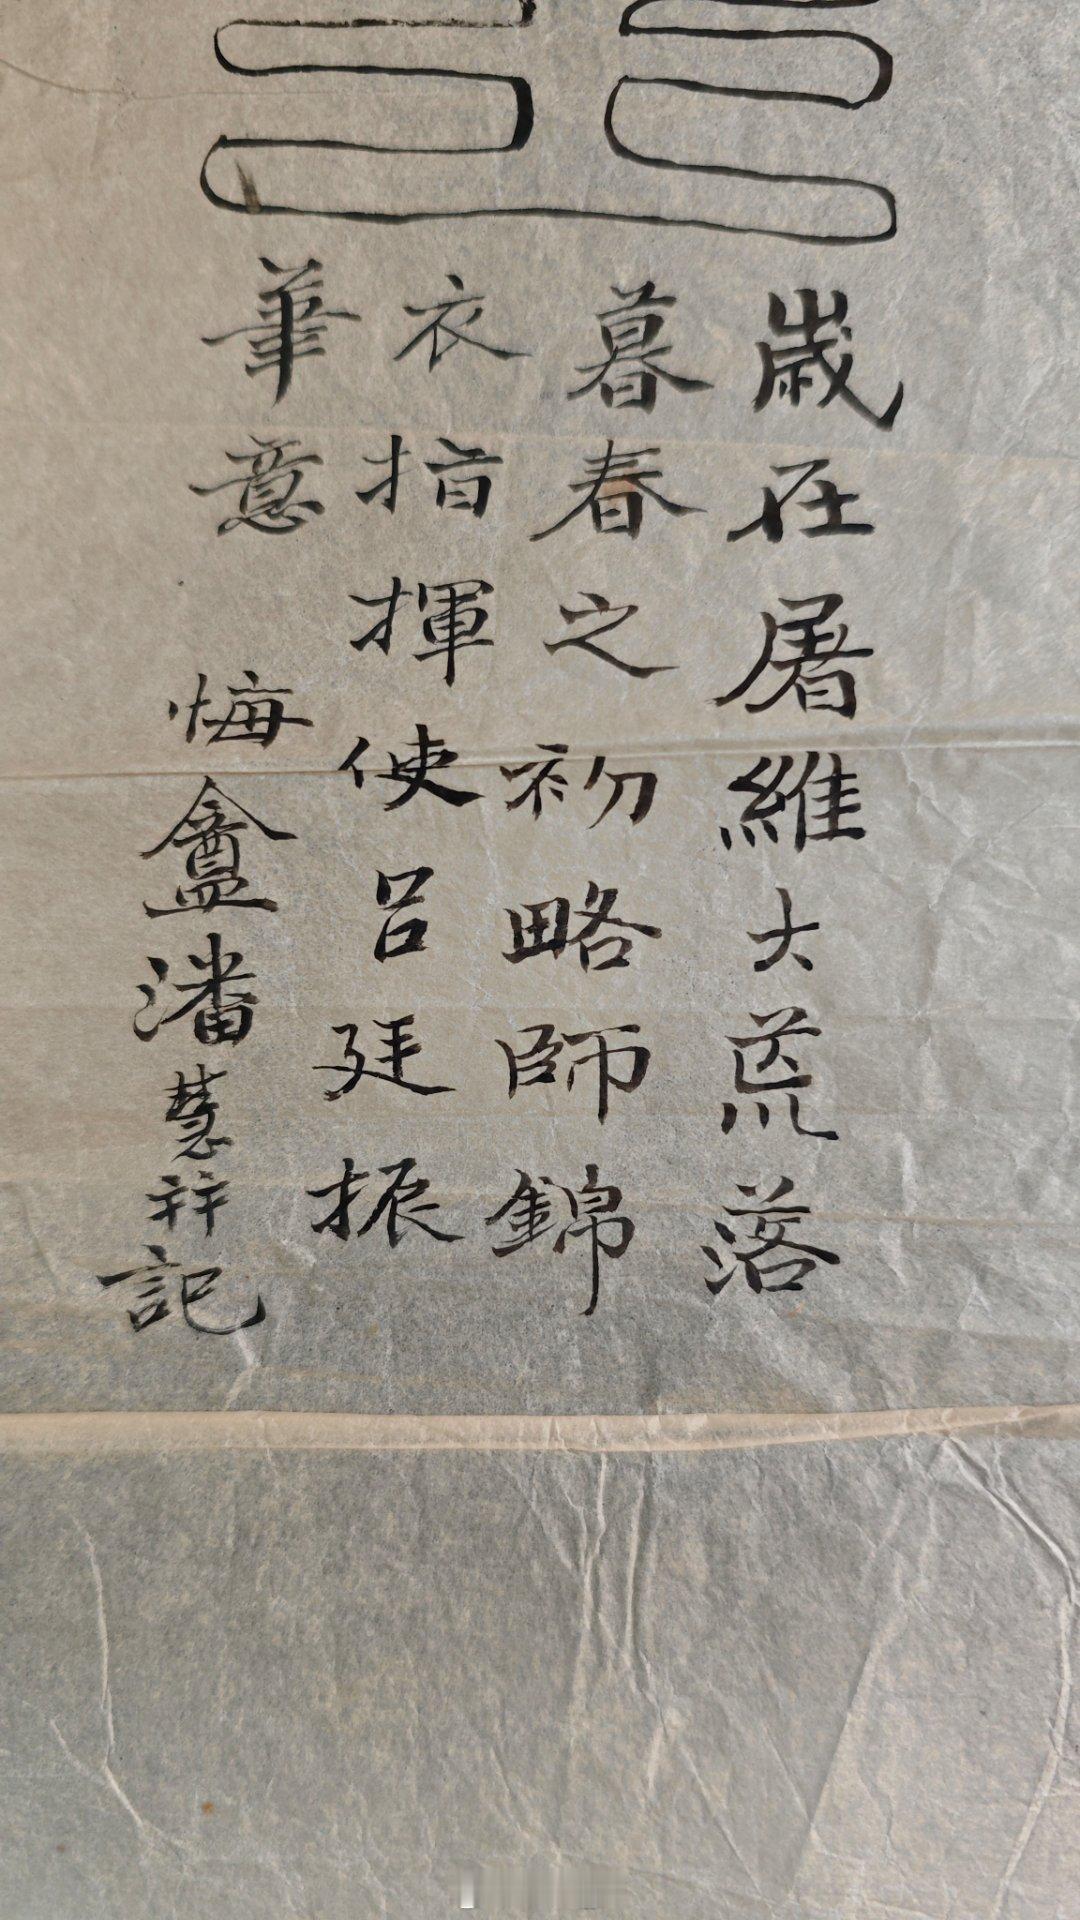 歲在屠維大荒落
暮春之初略師錦
衣指揮使呂廷振
筆意
悔盦潘慧祥記